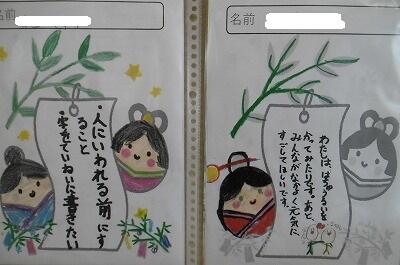 名前
・人にいわれる前にす
ること
・字をていねいに書きたい
名前
わたしは、はちゅうるいを
かってみたいです。あと、
みんながなかよく元気に、
すごしてほしいです。